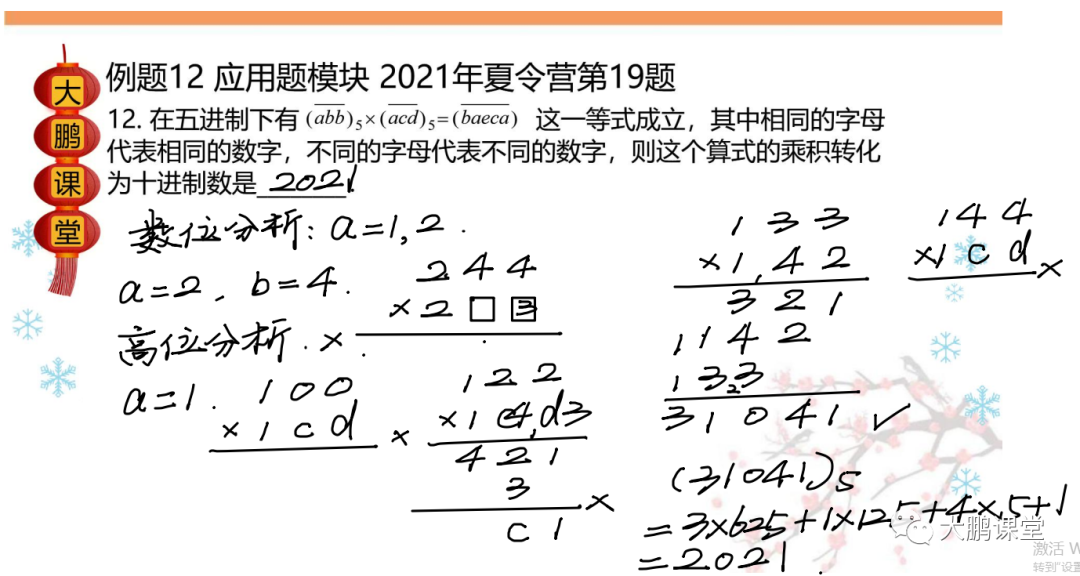 大鹏课堂
例题12 应用题模块 2021年夏令营第19题
12. 在五进制下有 (abb)₅×(acd)₅=(baeca) 这一等式成立，其中相同的字母
代表相同的数字，不同的字母代表不同的数字，则这个算式的乘积转化
为十进制数是 2021.
数位分析: a=1,2.
a=2, b=4.
244
×2□3
高位分析. ×
a=1.
100
×1cd
×
122
×1c4,d3
421
3
c1
×
133
×1,42
321
1142
133
31041 ✓
144
×1cd
×
(31041)5
=3×625+1×125+4×5+1
=2021.
大鹏课堂
激活 W
转到"设置